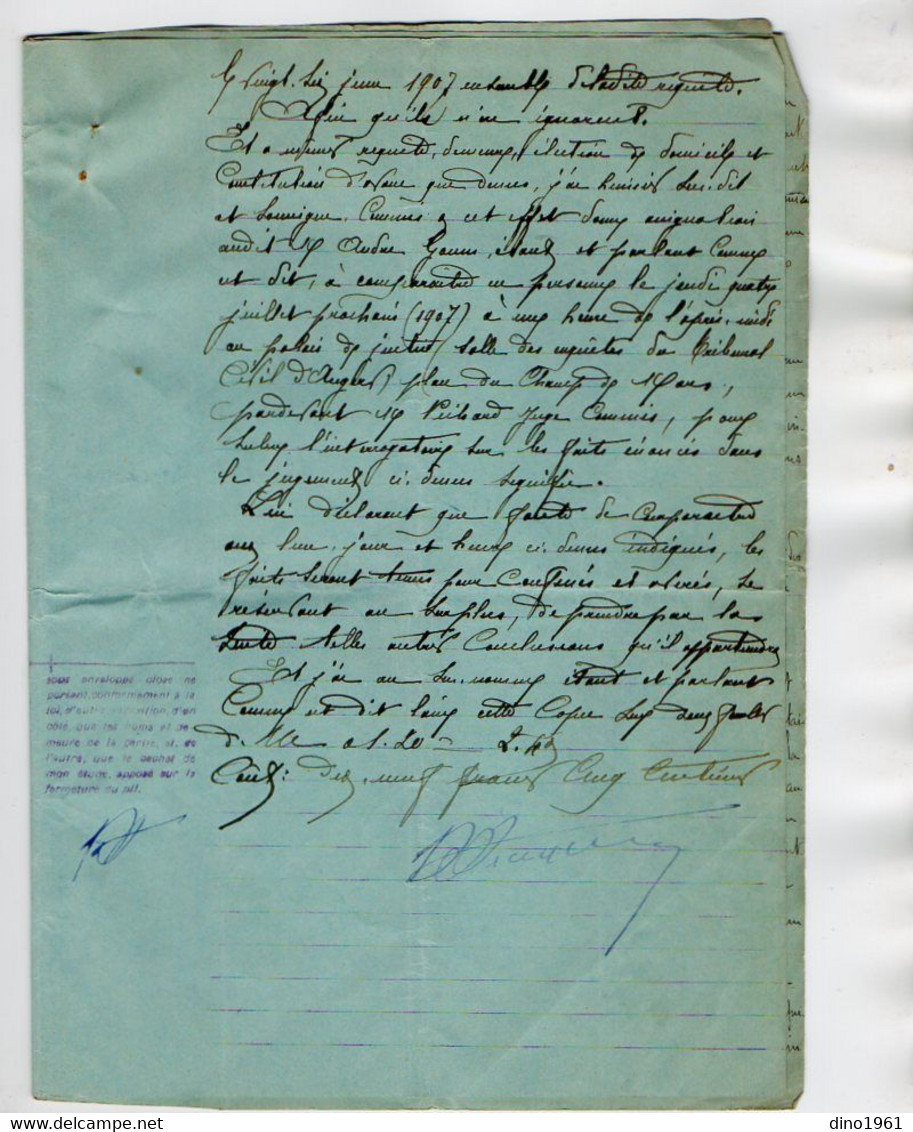 le vingt-six juin 1907 ensemble de ladite requête.
Afin qu'ils n'en ignorent.
Et a mêmes requête, demeure, élection de domicile et
Constitution d'avoué que dessus, j'ai huissier sus-dit
et soussigné, Commis a cet effet donné assignation
audit M André étant et parlant Comme
est dit, à comparaitre en personne le jeudi quatre
juillet prochain (1907) à une heure de l'après-midi
au palais de justice salle des enquêtes du Tribunal
Civil d'Angers place du Champ de Mars,
pardevant M Juge Commis, pour
subir l'interrogatoire sur les faits énoncés dans
le jugement ci-dessus signifié.
Lui déclarant que faute de Comparaitre
aux lieu, jour et heure ci-dessus indiqués, les
faits seront tenus pour Confessés et avérés, se
réservant au surplus, de prendre par la
suite telles autres Conclusions qu'il appartiendra
Et j'ai au sus-nommé étant et parlant
Comme est dit laissé cette Copie sur deux feuilles
de 1.20 = 2.40
Cout: dix-neuf francs Cinq Centimes
sous enveloppe close ne
portant conformément à la
loi, d'autre indication, d'un
côté, que les noms et de-
meure de la partie, et, de
l'autre, que le cachet de
mon étude, apposé sur la
fermeture du pli.
dino1961